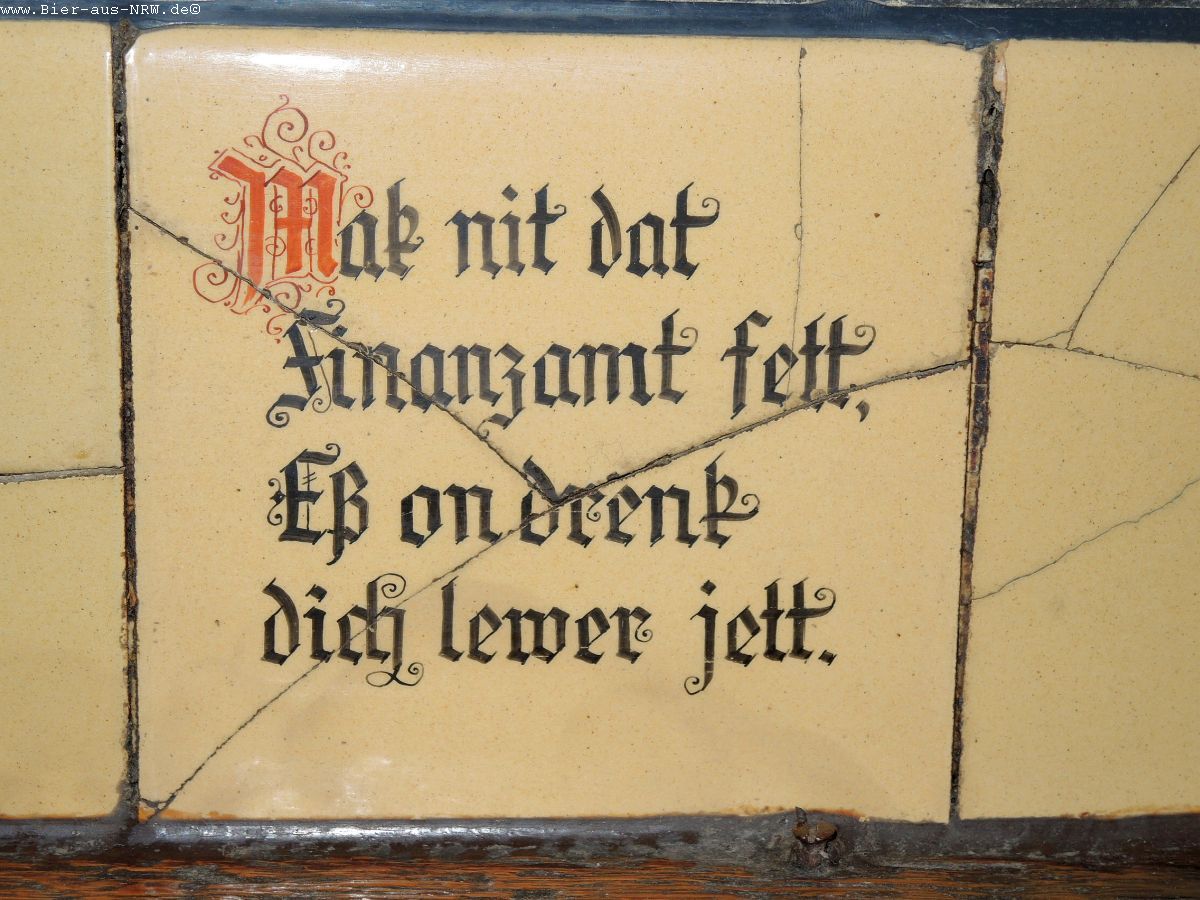 www.Bier-aus-NRW.de©
Mak nit dat
Finanzamt fett,
Eß on drenk
dich lewer jett.